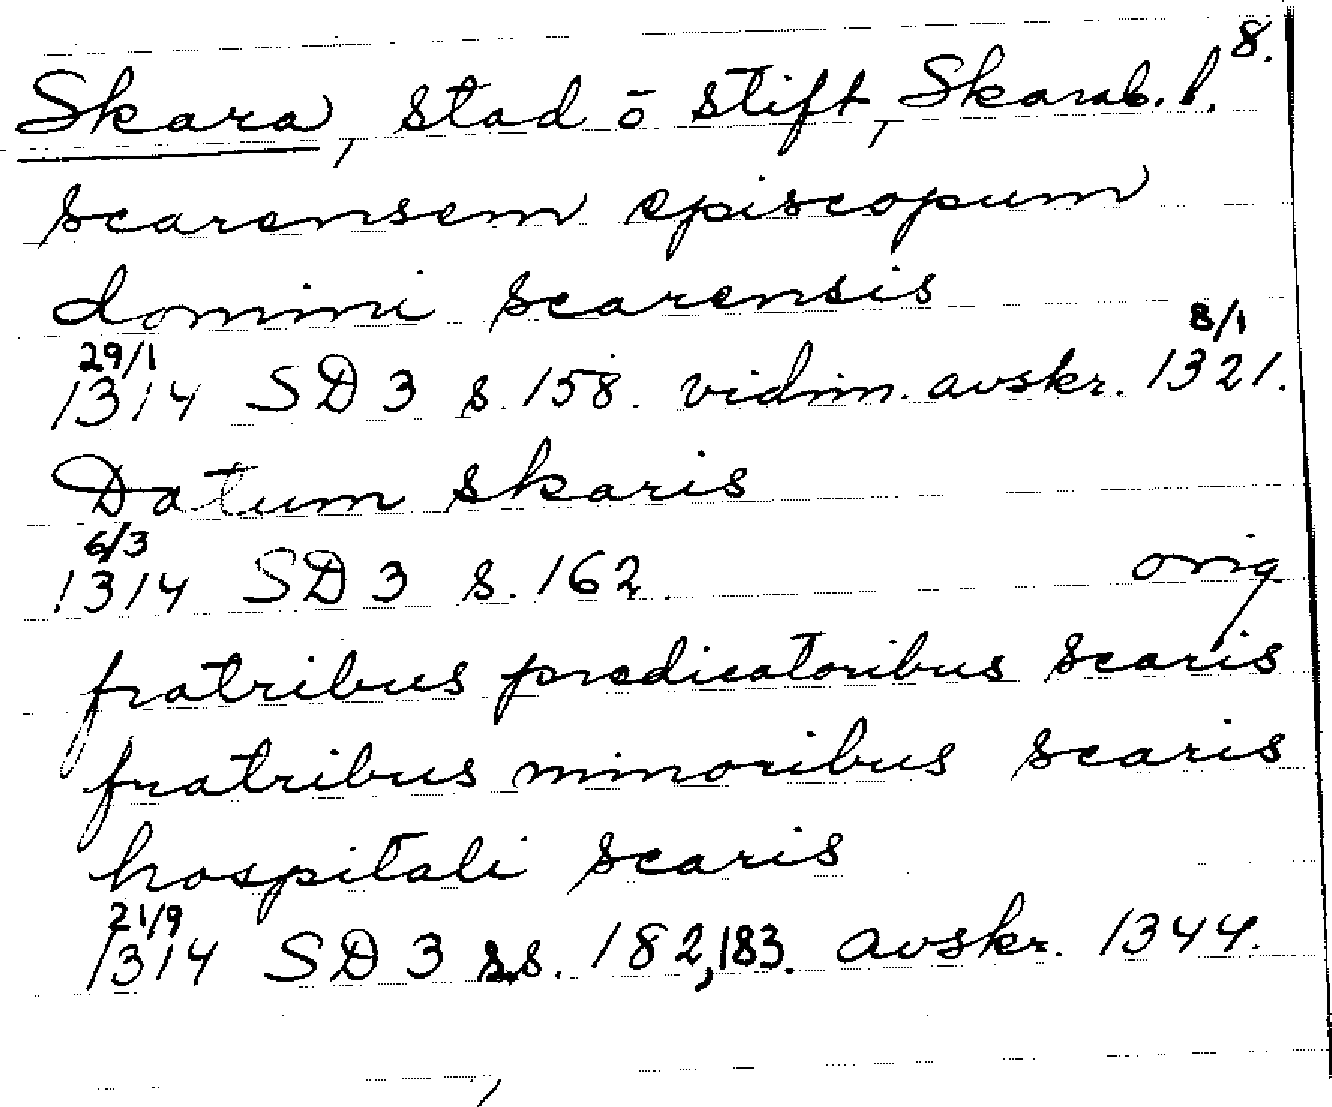 8.
Skara, stad o stift, Skarab. l.
scarensem episcopum
domini scarensis
29/1 8/1
1314 SD 3 s. 158. vidim. avskr. 1321.
Datum skaris
6/3
1314 SD 3 s. 162. orig
fratribus predicatoribus scaris
fratribus minoribus scaris
hospitali scaris
21/9
1314 SD 3 s.s. 182,183. avskr. 1344.